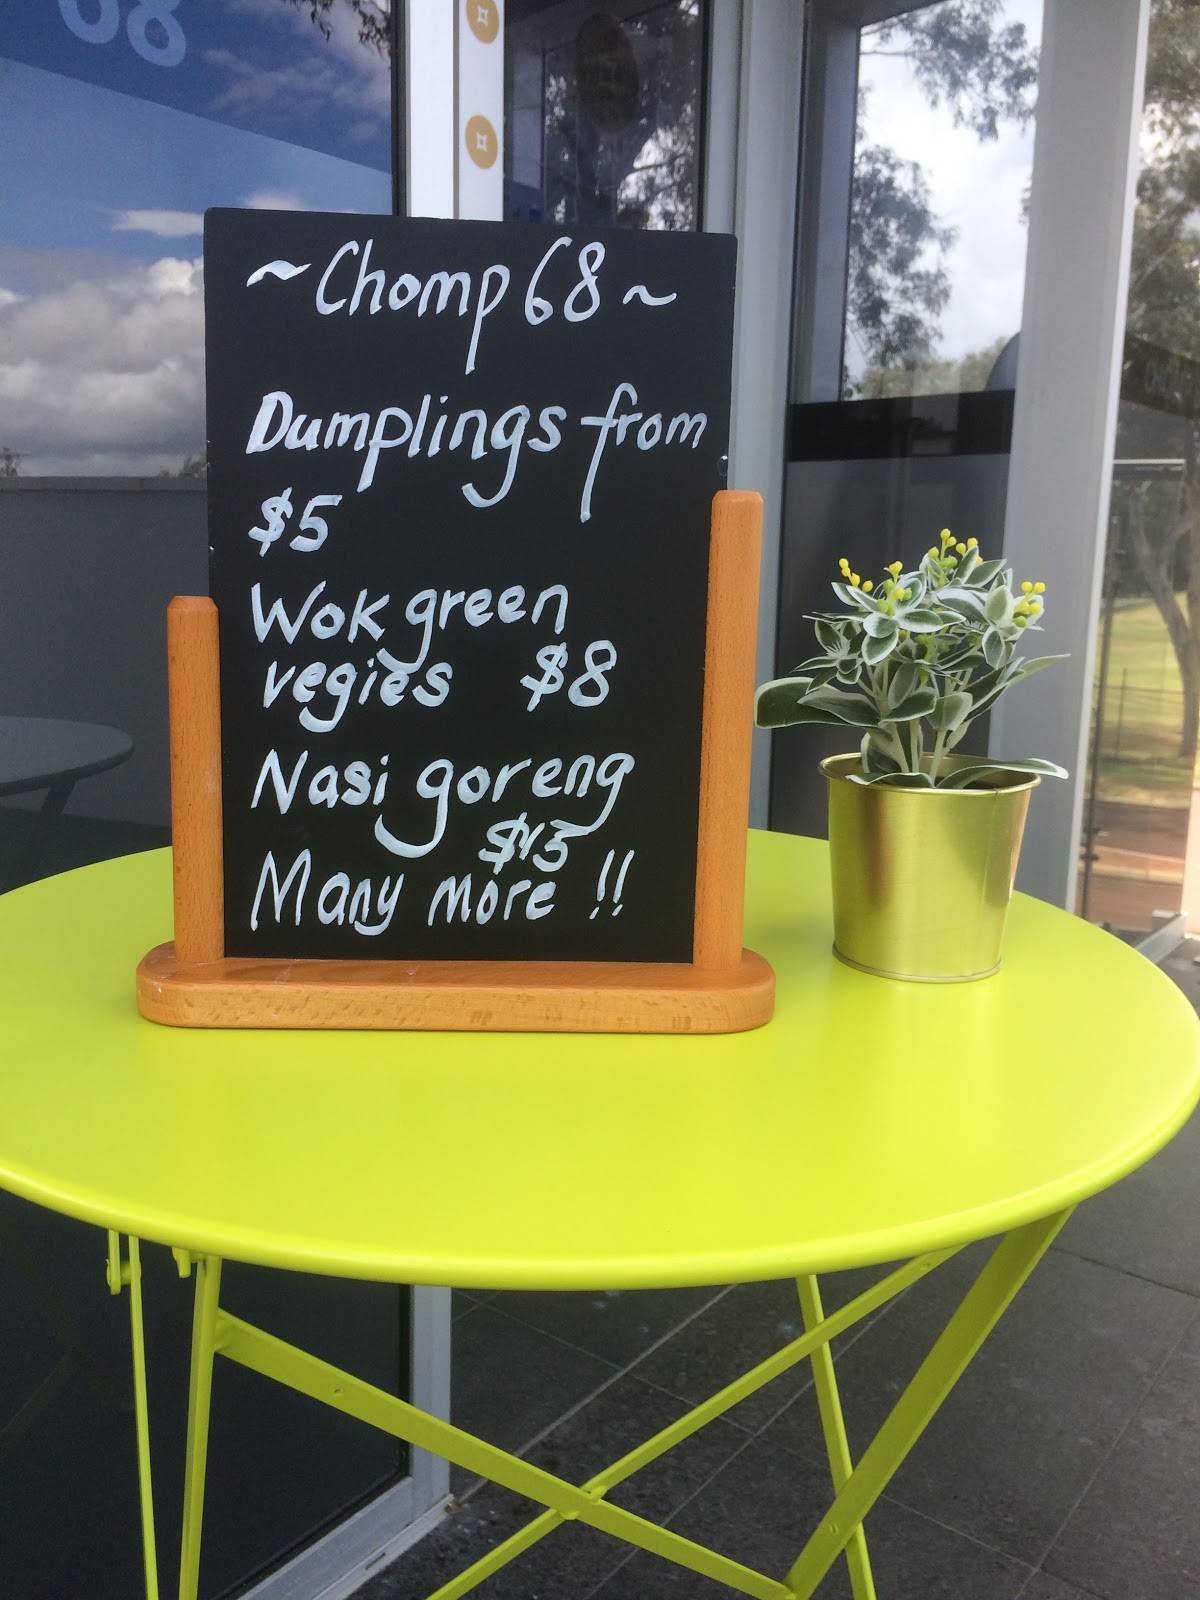 68
~Chomp 68~
Dumplings from
$5
Wok green
vegies $8
Nasi goreng
$15
Many more !!